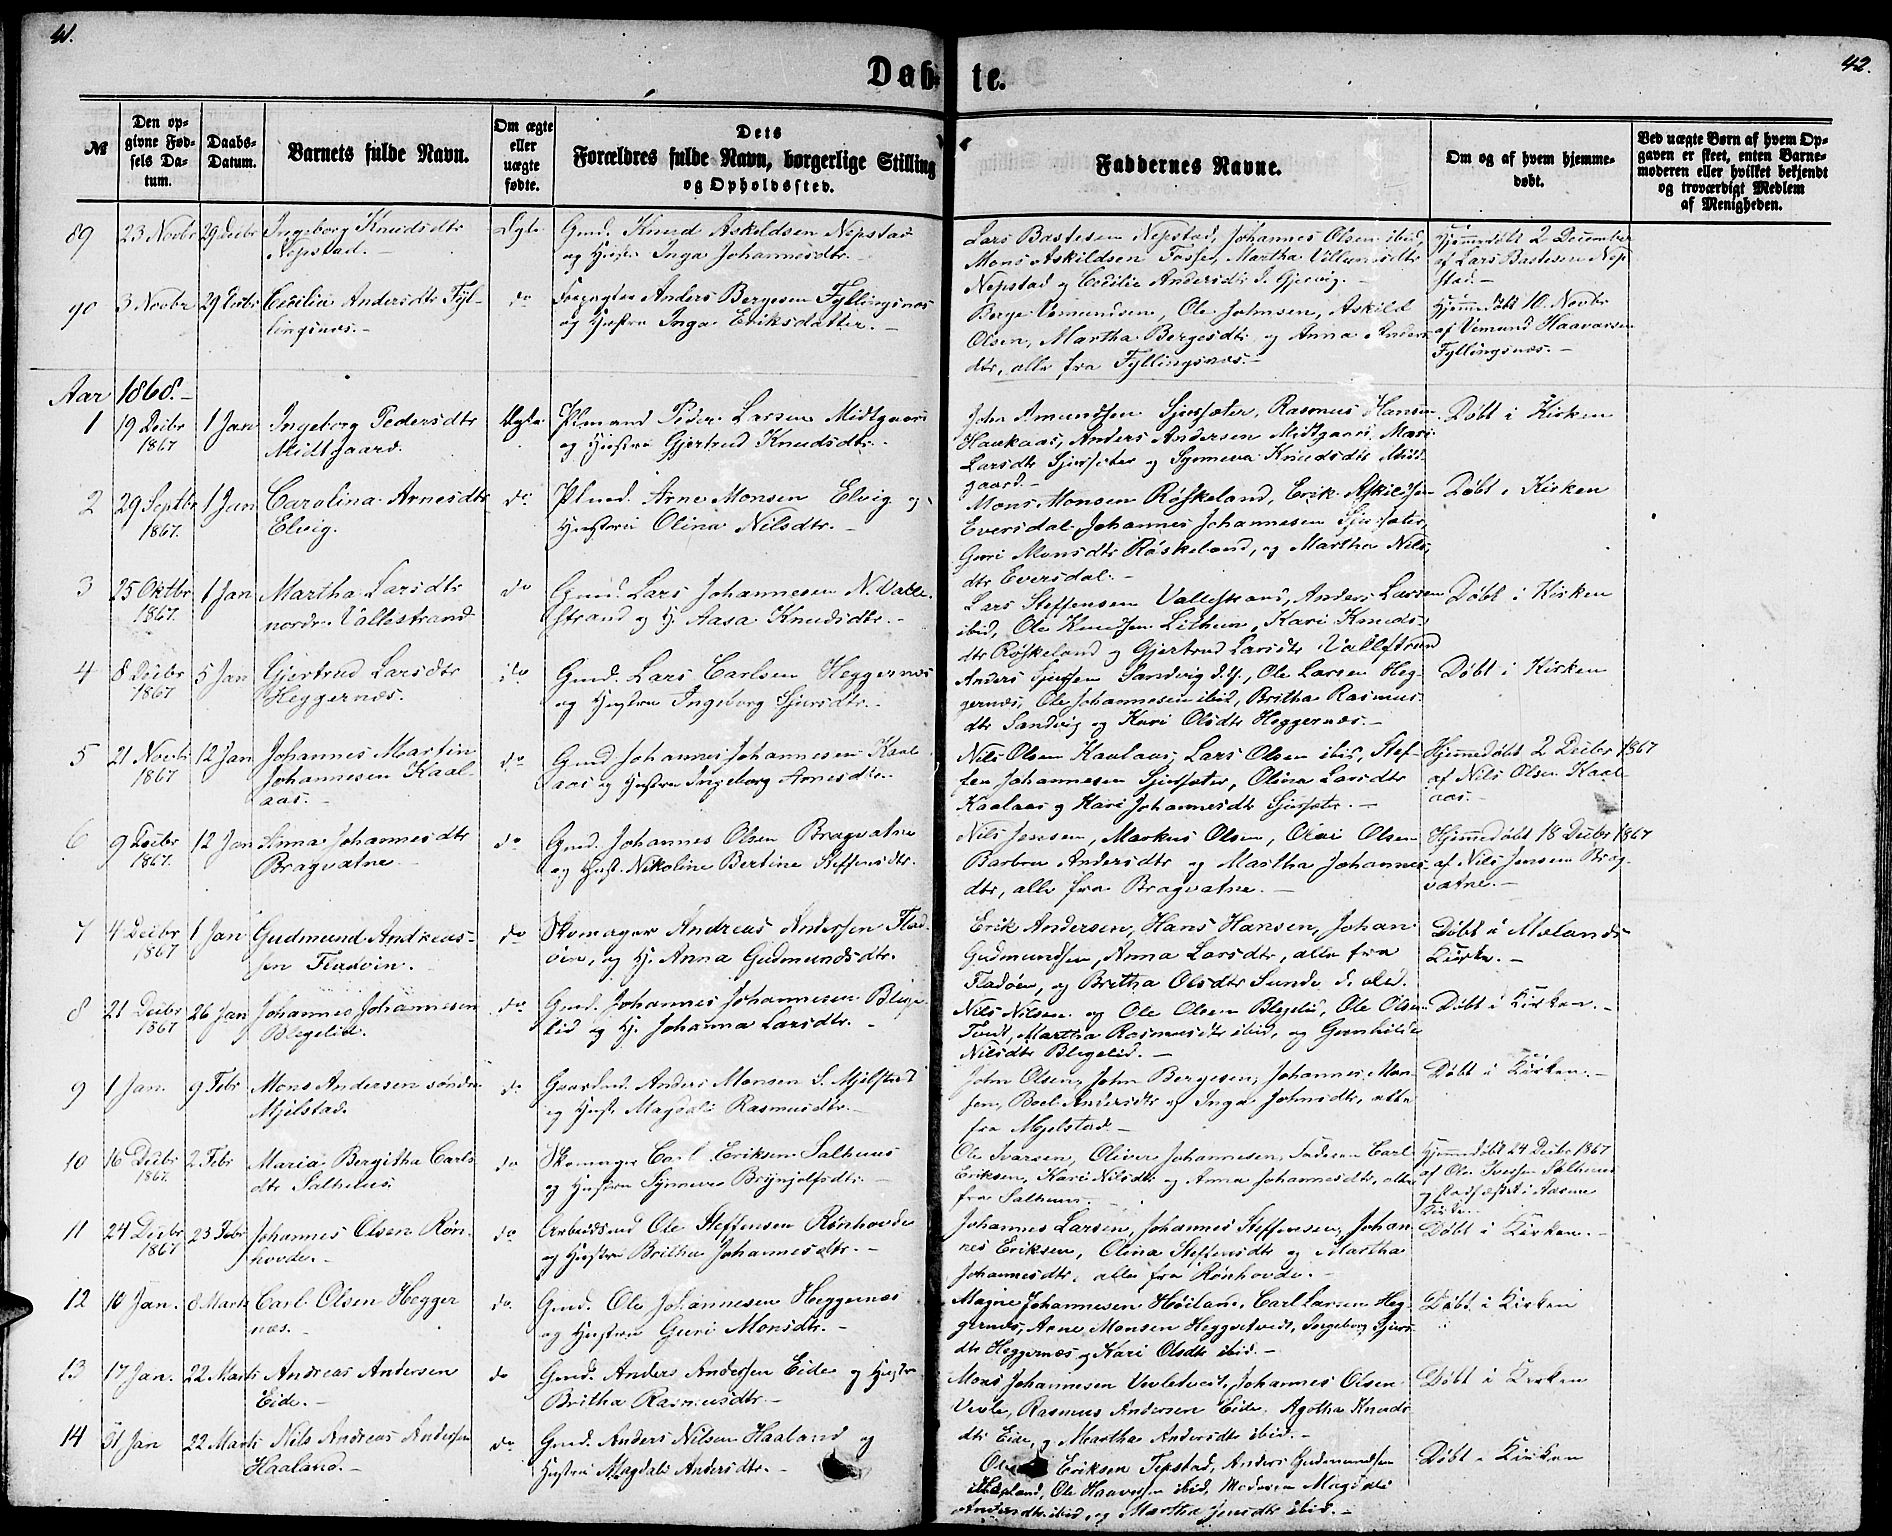 41.
42.
Døb
te.
№
Den op-
givne Fød-
sels Da-
tum.
Daabs-
Datum.
Barnets fulde Navn.
Om ægte
eller
uægte
fødte.
Dets
Forældres fulde Navn, borgerlige Stilling
og Opholdssted.
Faddernes Navne.
Om og af hvem hjemme-
døbt.
Ved uægte Børn af hvem Op-
gaven er skeet, enten Barne-
moderen eller hvilket bekjendt
og troværdigt Medlem
af Menigheden.
89 23 Novbr 29 Decbr Ingeborg Knudsdtr Ægte Gmd. Knud Askildsen Nepstad
Nepstad.- og Hustru Inga Johannesdtr.-
Lars Bastesen Nepstad, Johannes Olsen ibid,
Mons Askildsen Fosse, Martha Villumsdtr
Nepstad og Cecilie Andersdtr Gjervig.-
Hjemmedøbt 2 December
af Lars Bastesen Nep-
stad.-
90 3 Novbr 29 Decbr Cecilia Andersdtr Fyl- do Forpagter Anders Bergesen Fyllingsnes
lingsnæs.- og Hustru Inga Eriksdatter.-
Berge Vemundsen, Ole Johnsen, Askild
Olsen, Martha Bergesdtr og Anna Anders-
dtr, alle fra Fyllingsnæs.-
Hjemmedøbt 10 Novbr
af Vemund Haavarsen
Fyllingsnæs.-
Aar 1868.-
1 19 Decbr 1 Jan Ingeborg Pedersdtr Ægte Plmand Peder Larsen Midtgaard
1867 Midtgaard. og Hustru Gjertrud Knudsdtr.-
John Amundsen Sjursæter, Rasmus Hansen
Haukaas, Anders Andersen Midtgaard, Mari
Larsdtr Sjursæter og Synneva Knudsdtr Midt-
gaard.-
Døbt i Kirken
2 29 Septbr 1 Jan Carolina Arnesdtr do Plmd. Arne Monsen Elvig og
1867. Elvig. Hustru Olina Nilsdtr.-
Mons Monsen Røskeland, Erik Askildsen
Eversdal, Johannes Johannesen Sjursæter,
Guri Monsdtr Røskeland, og Martha Nils-
dtr Eversdal.-
Døbt i Kirken
3 25 Oktbr 1 Jan Martha Larsdtr do Gmd. Lars Johannesen N. Valle-
1867. nordr. Vallestrand strand og H. Aasa Knudsdtr.-
Lars Steffensen Vallestrand, Anders Larsen
ibid, Ole Knudsen Lithun, Kari Knuds-
dtr Røskeland og Gjertrud Larsdtr Vallestrand
Døbt i Kirken
4 8 Decbr 5 Jan Gjertrud Larsdtr do Gmd. Lars Carlsen Heggernæs
1867 Heggernæs. og Hustru Ingeborg Sjursdtr.-
Anders Sjursen Sandvig, Ole Larsen Heg-
gernæs, Ole Johannesen ibid, Britha Rasmus-
dtr Sandvig og Kari Olsdtr Heggernæs.-
Døbt i Kirken
5 21 Novbr 12 Jan Johannes Martin do Gmd Johannes Johannesen Kaal-
1867 Johannesen Kaal- aas og Hustru Ingeborg Arnesdtr.
aas.-
Nils Olsen Kaalaas, Lars Olsen ibid, Stef-
fen Johannesen Sjursæter, Olina Larsdtr
Kaalaas og Kari Johannesdtr Sjursætr.-
Hjemmedøbt 2 Decbr 1867
af Nils Olsen Kaal-
aas.-
6 9 Decbr 12 Jan Anna Johannesdtr do Gmd. Johannes Olsen Bragvatne
1867. Bragvatne og Hust. Nikoline Bertine Steffensdtr.
Nils Jensen, Markus Olsen, Olai Olsen
Barbru Andersdtr og Martha Johannes-
dtr, alle fra Bragvatne.-
Hjemmedøbt 18 Decbr 1867
af Nils Jensen Brag-
vatne.-
7 4 Decbr 1 Jan Gudmund Andreas- do Skomager Andreas Andersen Flad-
1867 sen Fladøin. øin, og H. Anna Gudmundsdtr.
Erik Andersen, Hans Hansen, Johan
Gudmundsen, Anna Larsdtr, alle fra
Fladøen, og Britha Olsdtr Sunde
Døbt i Mælands
Kirke.-
8 21 Decbr 26 Jan Johannes Johannesen do Gmd. Johannes Johannesen Blege-
1867 Blegelid. lid og H. Johanna Larsdtr.-
Nils Nilsen og Ole Olsen Blegelid, Ole Olsen
Tveit, Martha Rasmusdtr ibid, og Gunhilde
Nilsdtr Blegelid.-
Døbt i Kirken.-
9 1 Jan. 9 Febr Mons Andersen søndre do Gaardmd. Anders Monsen S. Mjelstad
Mjelstad. og Hust. Magdali Rasmusdtr.-
John Olsen, John Bergesen, Johannes Mon-
sen, Boel Andersdtr og Inga Johnsdtr, alle
fra Mjelstad.-
Døbt i Kirken.-
10 16 Decbr 2 Febr Maria Bergitha Carls- do Skomager Carl Eriksen Salhuus
1867. dtr Salhuus. og Hustru Synneve Brynjolfsdtr.-
Ole Ivarsen, Oliver Johannesen, Faderen Carl
Eriksen, Kari Nilsdtr og Anna Johannesdtr, alle
fra Salhuus.
Hjemmedøbt 24 Decbr 1867
af Ole Ivarsen Salhuus
og stadfæstet i Aasene
Kirken
11 24 Decbr 23 Febr Johannes Olsen Røn- do Arbeidsmd Ole Steffensen Rønhovde
1867 hovde.- og Hustru Britha Johannesdtr.-
Johannes Larsen, Johannes Steffensen, Johan-
nes Eriksen, Olina Steffensdtr og Martha
Johannesdtr, alle fra Rønhovde.-
Døbt i Kirken.-
12 10 Jan. 8 Marts Carl Olsen Hegger do. Gmd. Ole Johannesen Heggernæs
næs.- og Hustru Guri Monsdtr.-
Magne Johannesen Høiland, Carl Larsen Heg-
gernæs, Arne Monsen Heggertveit, Ingeborg Sjurs-
dtr Heggernæs og Kari Olsdtr ibid.-
Døbt i Kirken
13 17 Jan. 22 Marts Andreas Andersen do Gmd. Anders Andersen Eide og Hustru
Eide.- Britha Rasmusdtr.-
Mons Johannesen Vevletveit, Johannes Olsen
Vevle, Rasmus Andersen Eide, Agatha Knuds-
dtr Eide, og Martha Andersdtr ibid.-
Døbt i Kirken
14 31 Jan 22 Marts Nils Andreas Andersen do Gmd. Anders Nilsen Haaland og
Haaland.- Hustru Magdali Andersdtr.-
Ole Eriksen Tepstad, Anders Gudmundsen
Haaland, Ole Haavarsen ibid, Moderen Magdali
Andersdtr ibid og Martha Jensdtr ibid.-
Døbt i Kirken